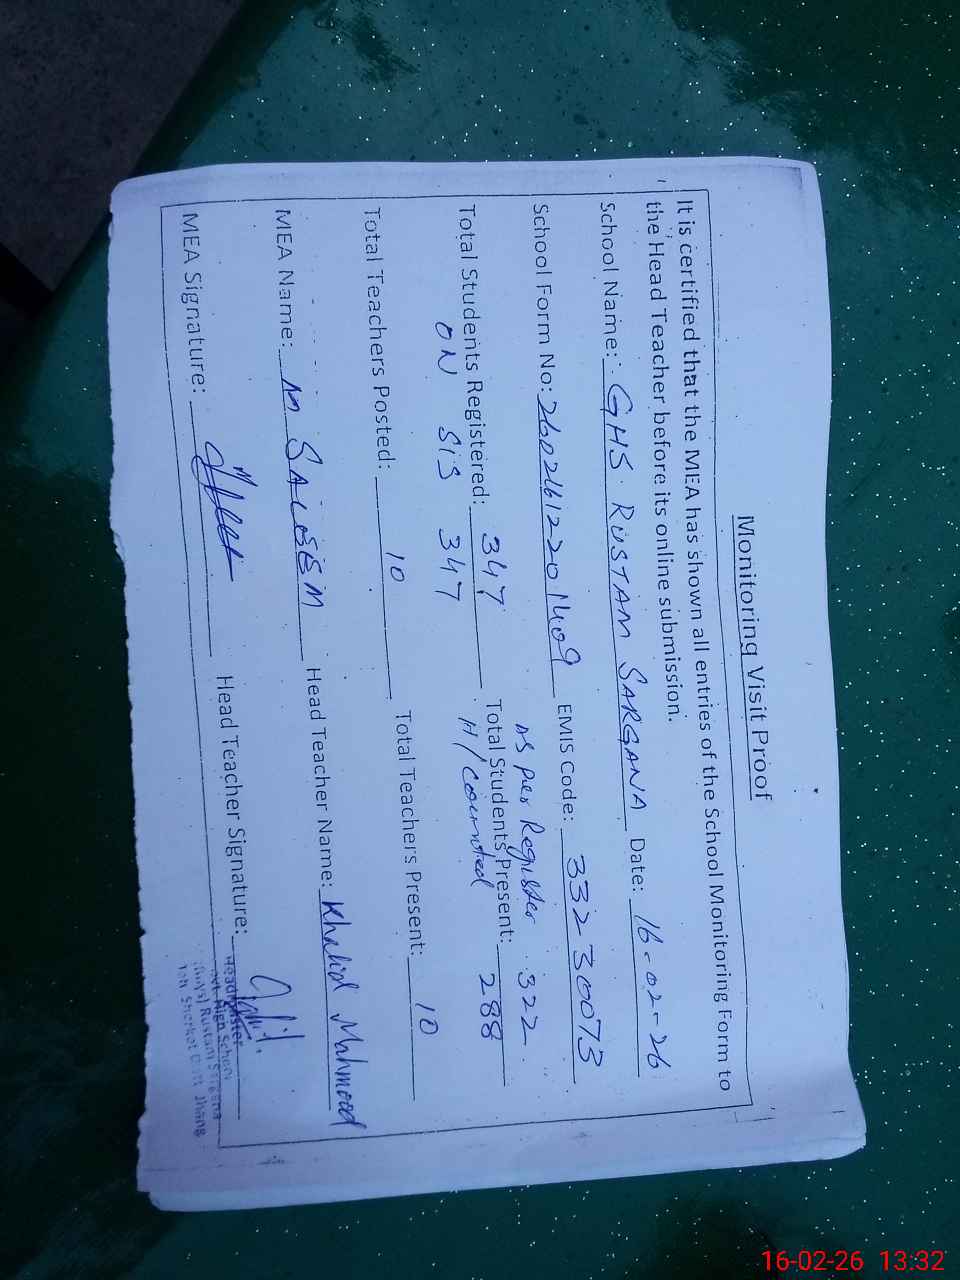 Monitoring Visit Proof
It is certified that the MEA has shown all entries of the School Monitoring Form to
the Head Teacher before its online submission.
School Name: GHS RUSTAM SARGANA Date: 16-02-26
School Form No: EMIS Code: 33230073
As Per Register 322
Total Students Registered: 347 Total Students Present: 288
ON SIS 347 H/Counted
Total Teachers Posted: 10 Total Teachers Present: 10
MEA Name: M SALEEM Head Teacher Name: Khalid Mahmood
MEA Signature: Head Teacher Signature:
Headmaster
Govt. High School
(Boys) Rustam Sargana
Teh. Shorkot Distt Jhang
16-02-26 13:32